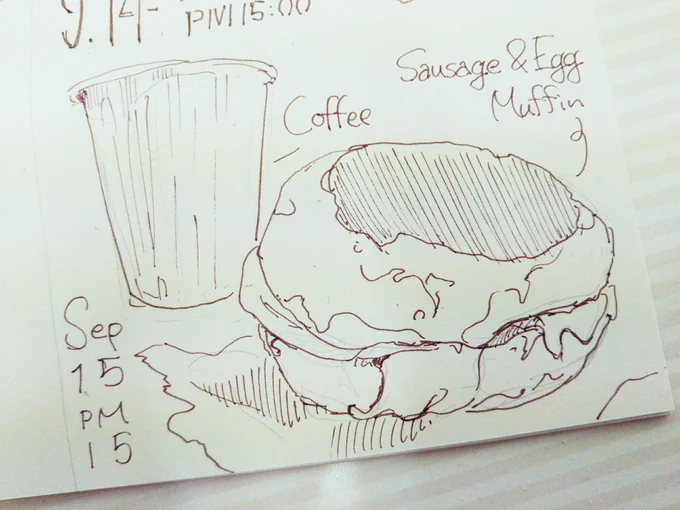 9.14-
PM 15:00
Sausage & Egg
Muffin
Coffee
Sep
15
PM
15